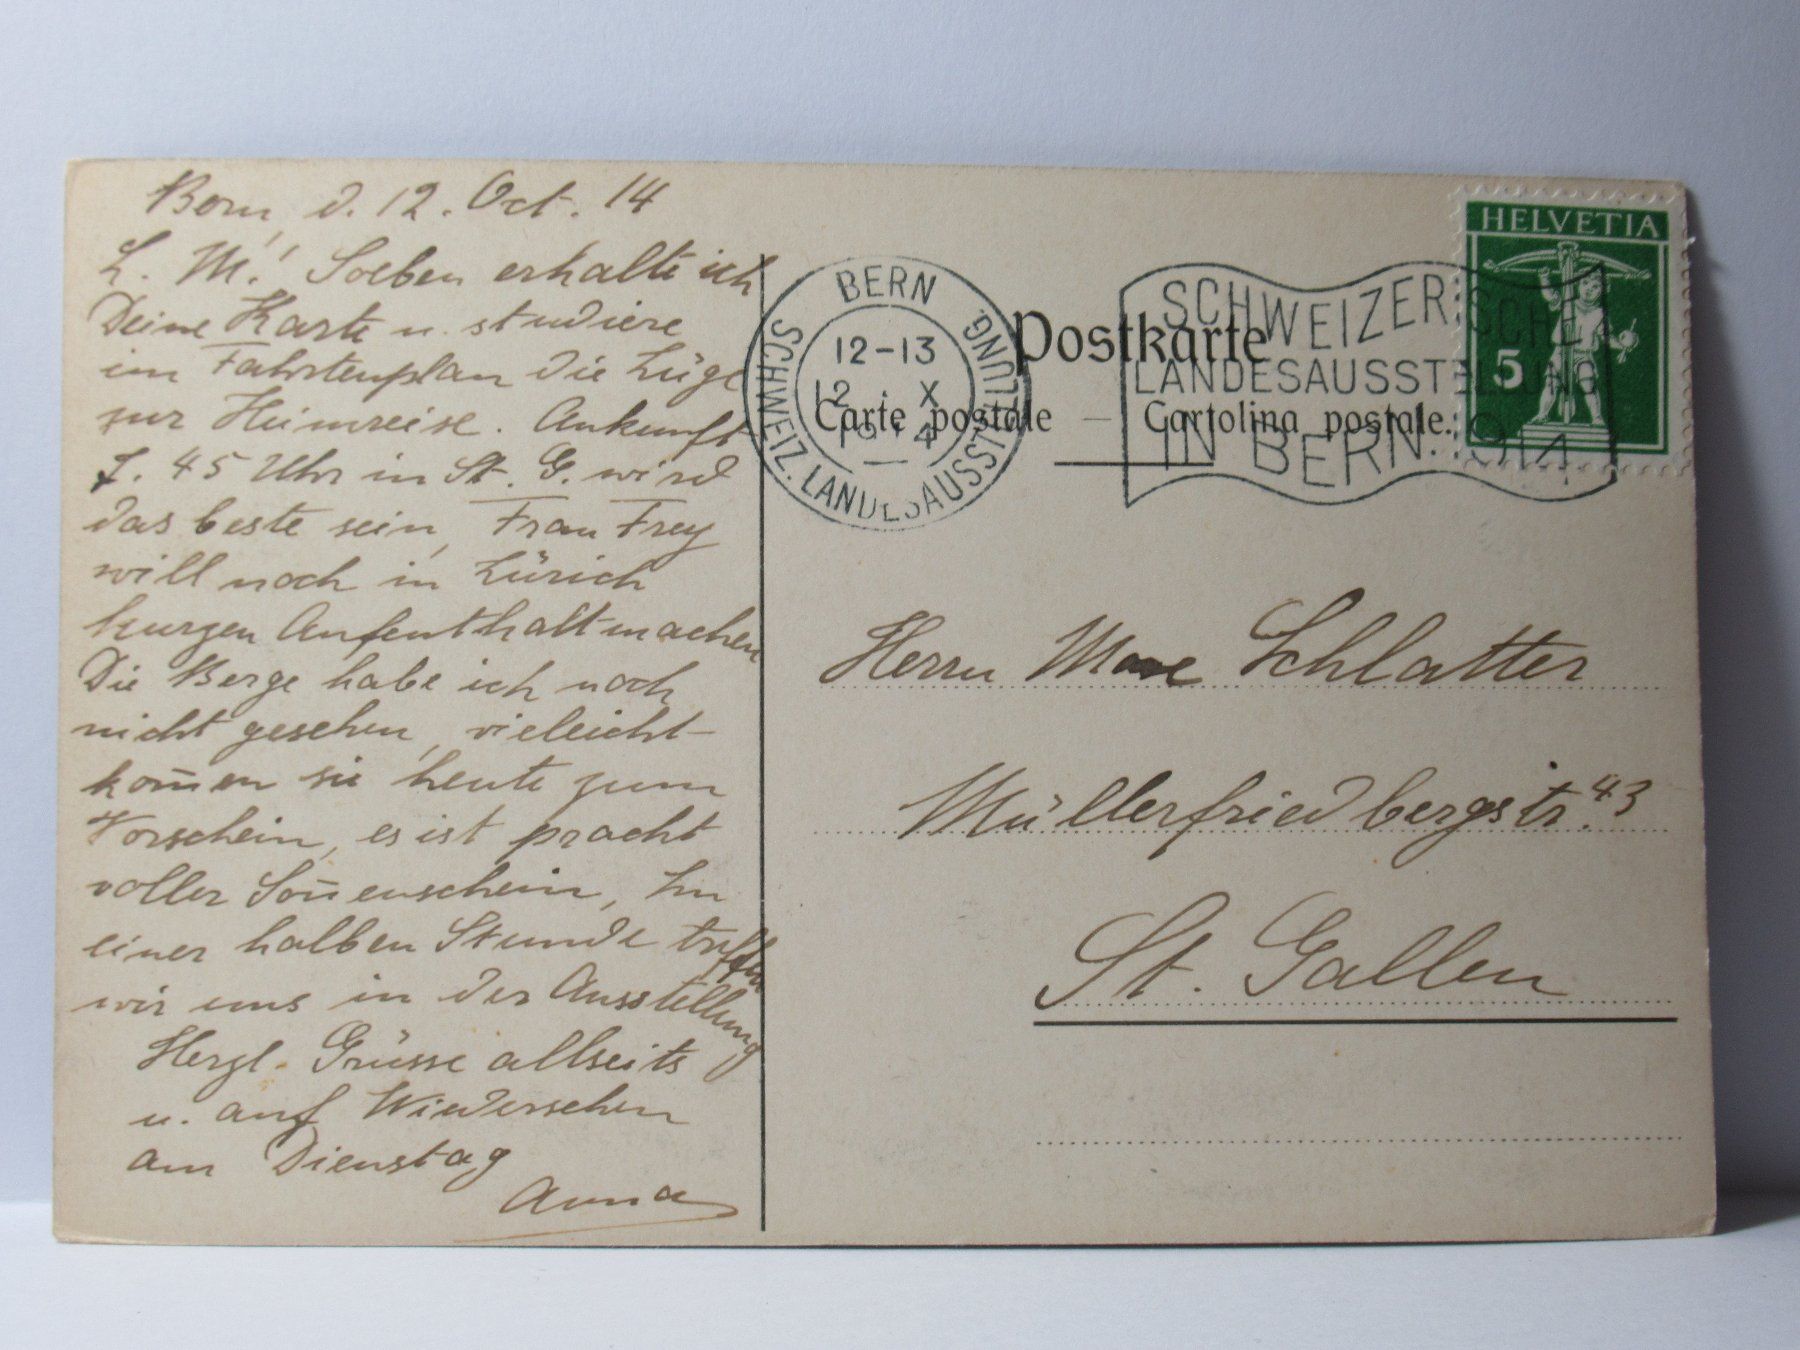 Bern, d. 12. Oct. 14
L. M.! Soeben erhalte ich
Deine Karte u. studiere
im Fahrtenplan die Züge
zur Heimreise. Ankunft
7. 45 Uhr in St. G. wird
das beste sein, Frau Frey
will noch in Zürich
kurzen Aufenthalt machen
Die Berge habe ich noch
nicht gesehen, vieleicht
kom̅en sie heute zum
Vorschein, es ist pracht
voller Son̅enschein, In
einer halben Stunde treffen
wir uns in der Ausstellung
Herzl. Grüsse allseits
u. auf Wiedersehen
am Dienstag
Anna
BERN
SCHWEIZ. LANDESAUSSTELLUNG.
12-13
12. X
1914
Postkarte
Carte postale — Cartolina postale.
SCHWEIZERISCHE
LANDESAUSSTELLUNG
IN BERN. 1914
HELVETIA
5
Herrn Schlatter
Müllerfriedbergstr. 43
St. Gallen